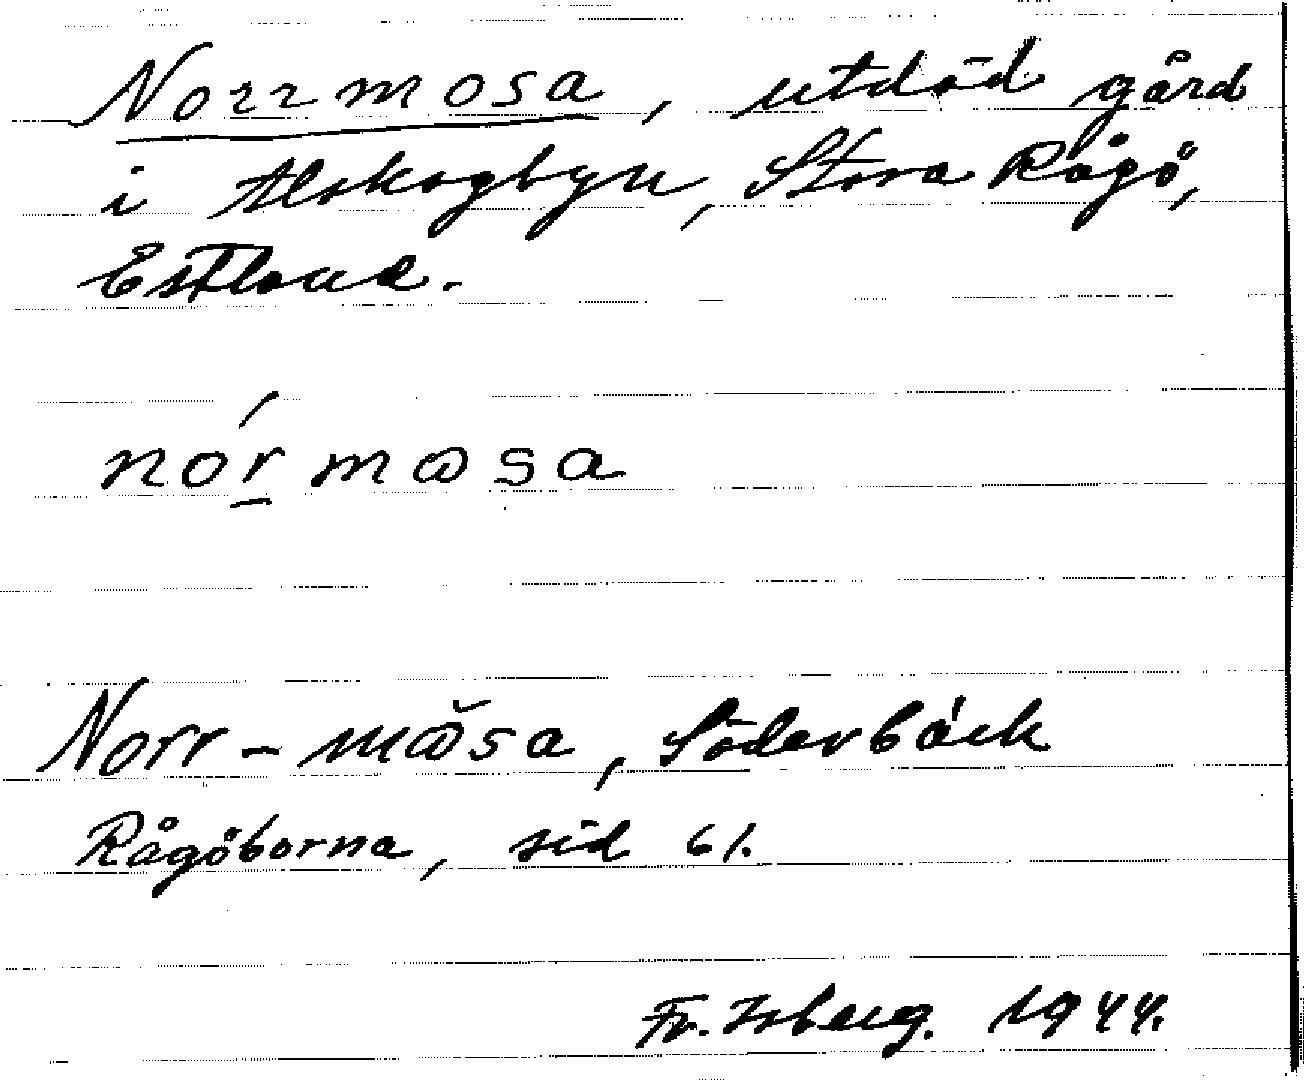 Norrmosa, utdöd gård
i Alskogbyn, Stora Rågö,
Estland.
nór̲mɷsa
Norr-mɷ̆sa, Söderbäck
Rågöborna, sid 61.
Fr. Isberg. 1944.